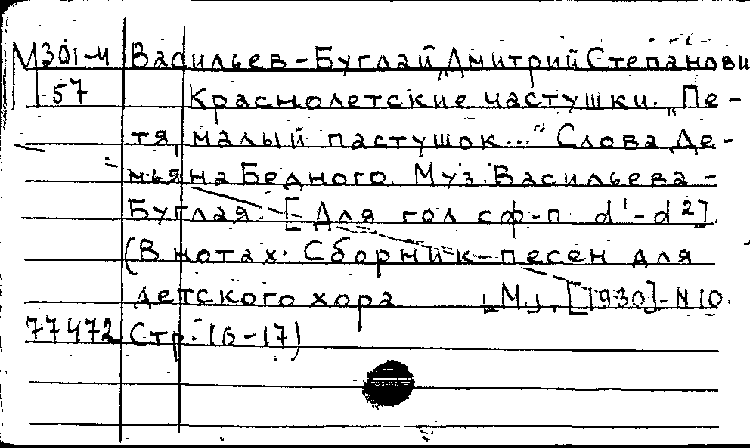 М301-4 Васильев-Буглай, Дмитрий Степанови
57 Краснолетские частушки. „Пе-
тя, малый пастушок..." Слова Де-
мьяна Бедного. Муз. Васильева-
Буглая. [Для гол. с ф-п. d¹-d²].
(В нотах: Сборник песен для
детского хора [М], [1930]-N10.
77472 Стр. 16-17)